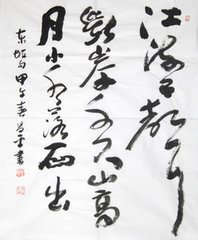 江流有聲
斷岸千尺山高
月小水落石出
东坡句甲午春書